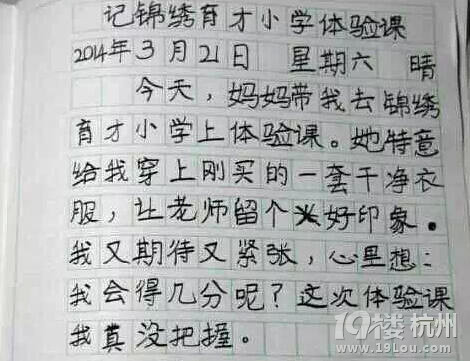 记锦绣育才小学体验课
2014年3月21日 星期六 晴
今天，妈妈带我去锦绣
育才小学上体验课。她特意
给我穿上刚买的一套干净衣
服，让老师留个好印象。
我又期待又紧张，心里想：
我会得几分呢？这次体验课
我真没把握。
19楼 杭州
www.19lou.com